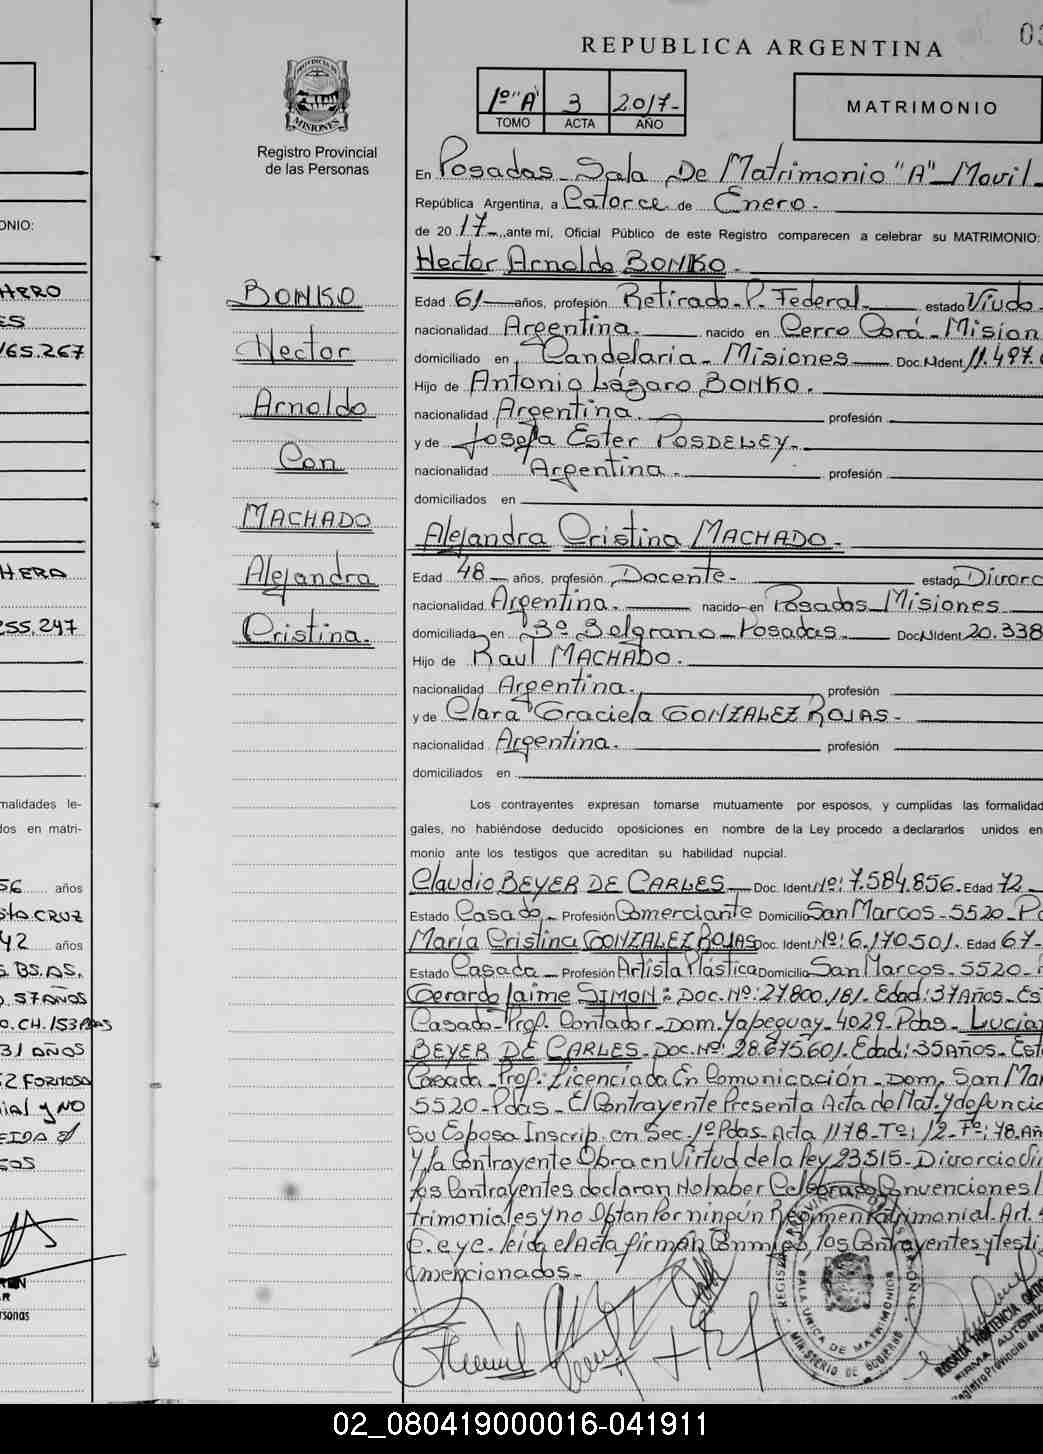 REPUBLICA ARGENTINA
PROVINCIA DE
MISIONES
Registro Provincial
de las Personas
1º "A" 3 2.017-
TOMO ACTA AÑO
MATRIMONIO
En Posadas - Sala De Matrimonio "A" - Movil -
República Argentina, a Catorce de Enero.-
de 2017-, ante mí, Oficial Público de este Registro comparecen a celebrar su MATRIMONIO:
Hector Arnoldo BONKO.-
Edad 61 años, profesión Retirado - P. Federal estado Viudo.-
nacionalidad Argentina. nacido en Cerro Corá - Mision
domiciliado en Candelaria - Misiones Doc. N. Ident. 11.497.
Hijo de Antonio Lázaro BONKO.
nacionalidad Argentina. profesión
y de Josefa Ester POSDELEY.-
nacionalidad Argentina.- profesión
domiciliados en
Alejandra Cristina MACHADO.-
Edad 48 años, profesión Docente.- estado Divorc
nacionalidad Argentina. nacido en Posadas - Misiones
domiciliada en Bº Belgrano - Posadas. Doc. N. Ident. 20.338
Hijo de Raul MACHADO.
nacionalidad Argentina. profesión
y de Clara Graciela GONZALEZ ROJAS.-
nacionalidad Argentina. profesión
domiciliados en
BONKO
Hector
Arnoldo
Con
MACHADO
Alejandra
Cristina.
Los contrayentes expresan tomarse mutuamente por esposos, y cumplidas las formalidad
gales, no habiéndose deducido oposiciones en nombre de la Ley procedo a declararlos unidos en
monio ante los testigos que acreditan su habilidad nupcial.
Claudio BEYER DE CARLES - Doc. Ident. Nº: 7.584.856. Edad 72 -
Estado Casado - Profesión Comerciante Domicilio San Marcos - 5520 - Po
María Cristina GONZALEZ ROJAS Doc. Ident. Nº: 6.170.501. Edad 67-
Estado Casada - Profesión Artista Plástica Domicilio San Marcos - 5520 -
Gerardo Jaime SIMON: Doc. Nº: 27.800.181. Edad: 37 Años - Es
Casado - Prof. Contador - Dom. Yapeguay - 4029 - Pdas - Lucia
BEYER DE CARLES - Doc. Nº: 28.675.601. Edad: 35 Años - Est
Casada - Prof.: Licenciada En Comunicación - Dom. San Mar
5520 - Pdas - El Contrayente Presenta Acta de Mat. y defunció
Su Esposa Inscrip. en Sec. 1º Pdas - Acta 1178 - Tº: 12 - Fº: 78. Añ
Y la Contrayente Obra en Virtud de la Ley 23.515 - Divorcio Vin
Los Contrayentes declaran No haber Celebrado Convenciones
trimoniales y no Optan Por ningún Regimen Patrimonial. Art. 4
C. C. y C. leida el Acta firman Conmigo, los Contrayentes y testi
mencionados.-
REGISTRO PROVINCIAL DE LAS PERSONAS
SALA UNICA DE MATRIMONIOS
MINISTERIO DE GOBIERNO
FIRMA AUTORIZ
Registro Provincial de
ONIO:
HERO
ES
165.267
HERO
255.247
malidades le-
dos en matri-
56 años
Sta CRUZ
42 años
S. BS. AS.
57 AÑOS
O. CH. 153 Pdas
31 AÑOS
52 FORMOSA
nial y NO
EIDA el
gos
sonas
02_080419000016-041911